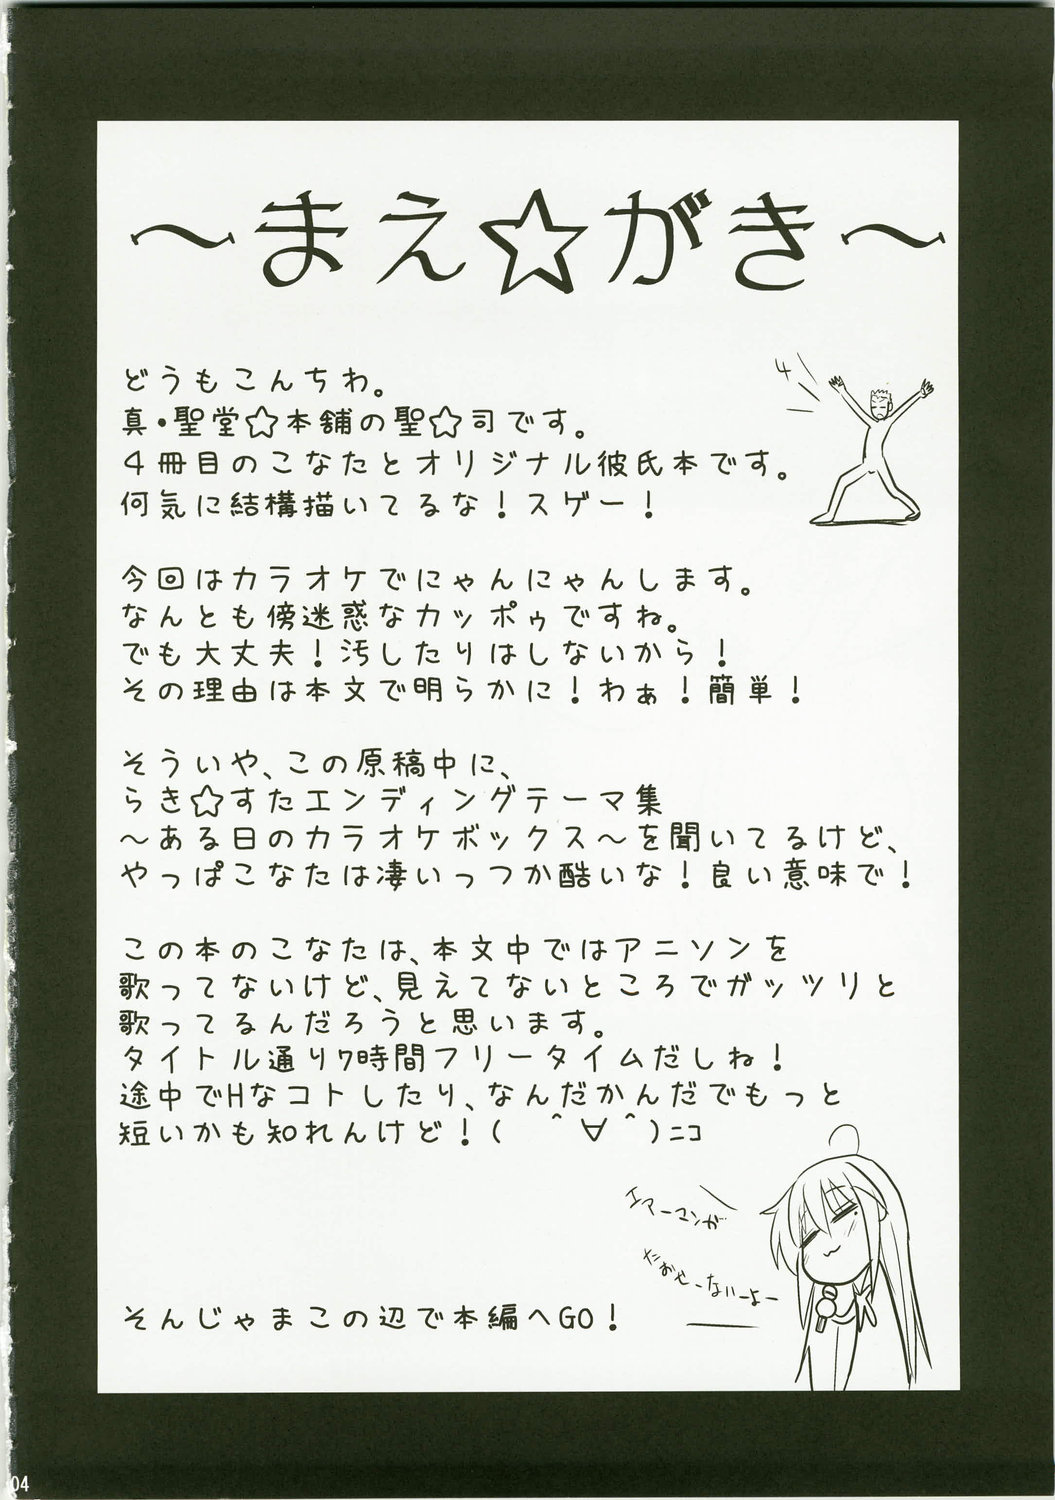 ～まえ☆がき～
4
どうもこんちわ。
真・聖堂☆本舗の聖☆司です。
４冊目のこなたとオリジナル彼氏本です。
何気に結構描いてるな！スゲー！
今回はカラオケでにゃんにゃんします。
なんとも傍迷惑なカッポゥですね。
でも大丈夫！汚したりはしないから！
その理由は本文で明らかに！わぁ！簡単！
そういや、この原稿中に、
らき☆すたエンディングテーマ集
～ある日のカラオケボックス～を聞いてるけど、
やっぱこなたは凄いっつか酷いな！良い意味で！
この本のこなたは、本文中ではアニソンを
歌ってないけど、見えてないところでガッツリと
歌ってるんだろうと思います。
タイトル通り7時間フリータイムだしね！
途中でHなコトしたり、なんだかんだでもっと
短いかも知れんけど！(　＾∀＾)ﾆｺ
エアーマンが
たおせーないーよー
そんじゃまこの辺で本編へGO！
04